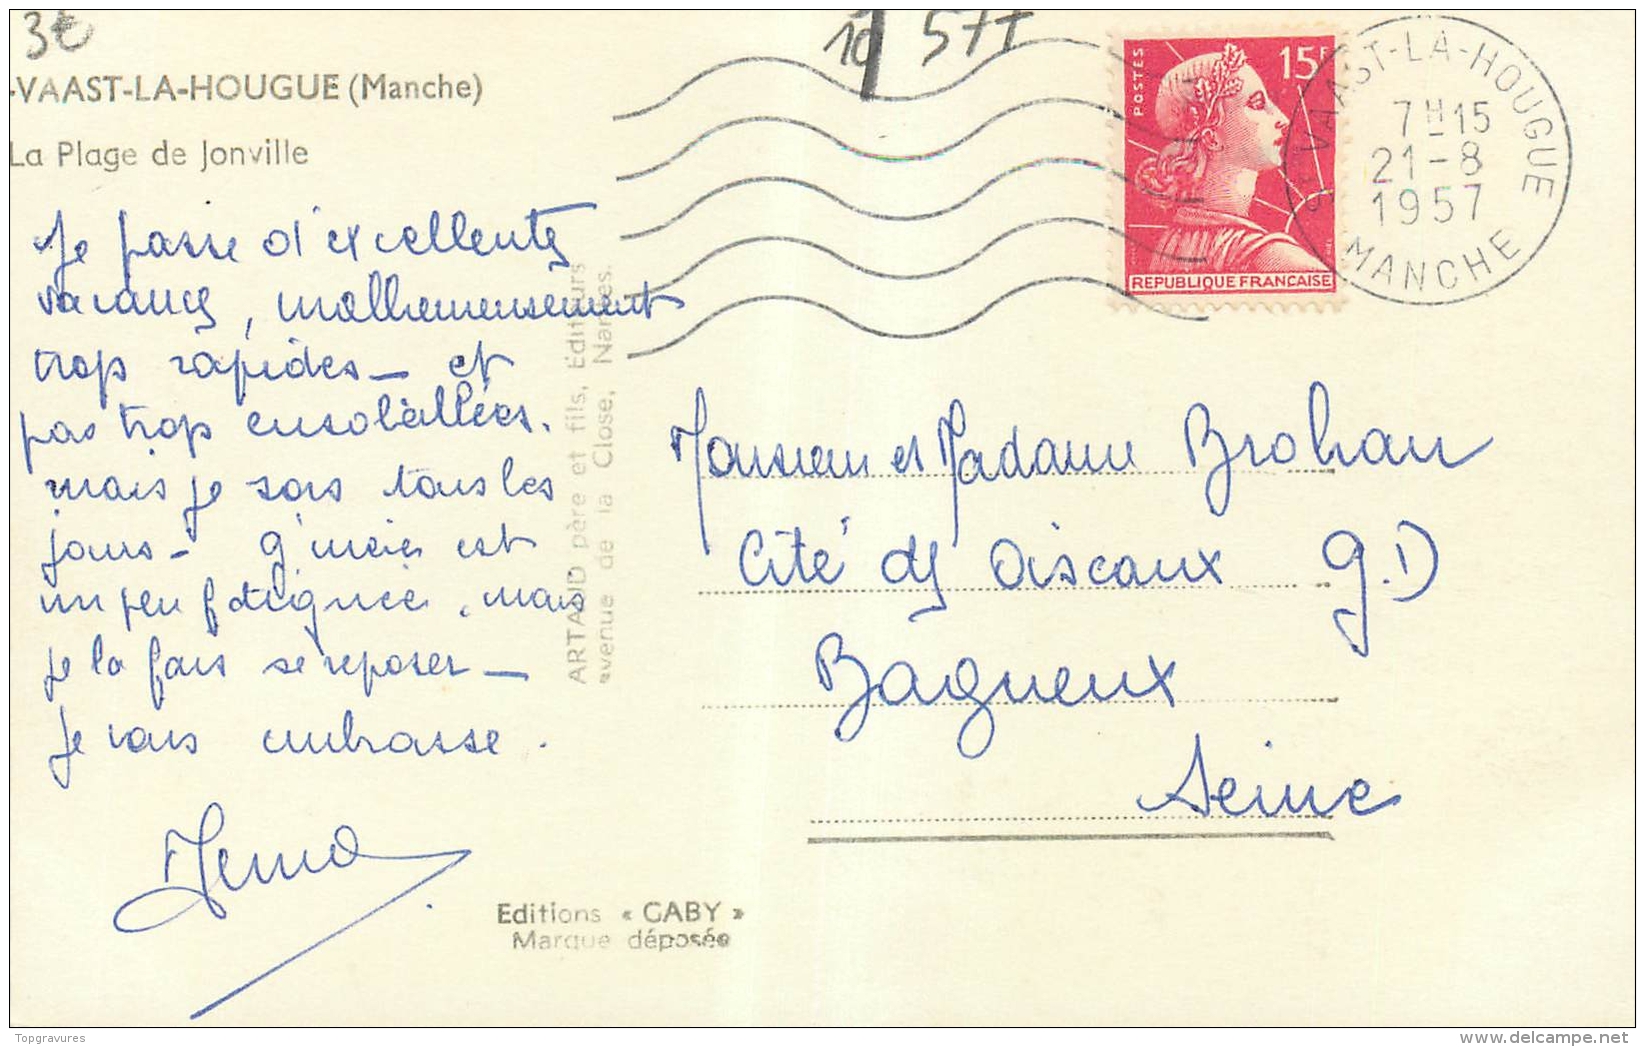 3€
10 577
-VAAST-LA-HOUGUE (Manche)
La Plage de Jonville
Je passe d'excellentes
vacances, malheureusement
trop rapides — et
pas trop ensoleillées.
mais je sors tous les
jours -
est
un peu fatiguée, mais
je la fais se reposer —
Je vous embrasse.
ARTAUD père et fils, Editeurs
avenue de la Close, Nantes.
Editions « GABY »
Marque déposée
POSTES
15F
REPUBLIQUE FRANÇAISE
ST-VAAST-LA-HOUGUE
7H15
21-8
1957
MANCHE
Monsieur et Madame Brohan
Cité des Oiseaux 9.D
Bagneux
Seine
Topgravures
delcampe.net